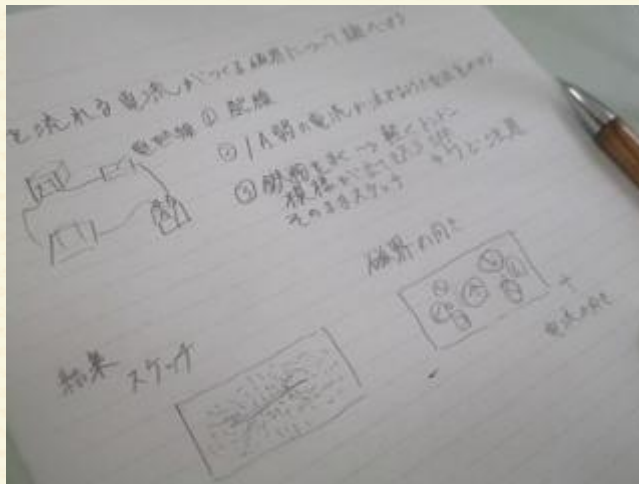 を流れる電流がつくる磁界について調べよう
電熱線
① 配線
② 1A弱の電流が流れるように
③ 鉄粉をまく → 軽くトントン
模様が出てきたら
そのままスケッチ
磁界の向き
電流の向き
結果
スケッチ